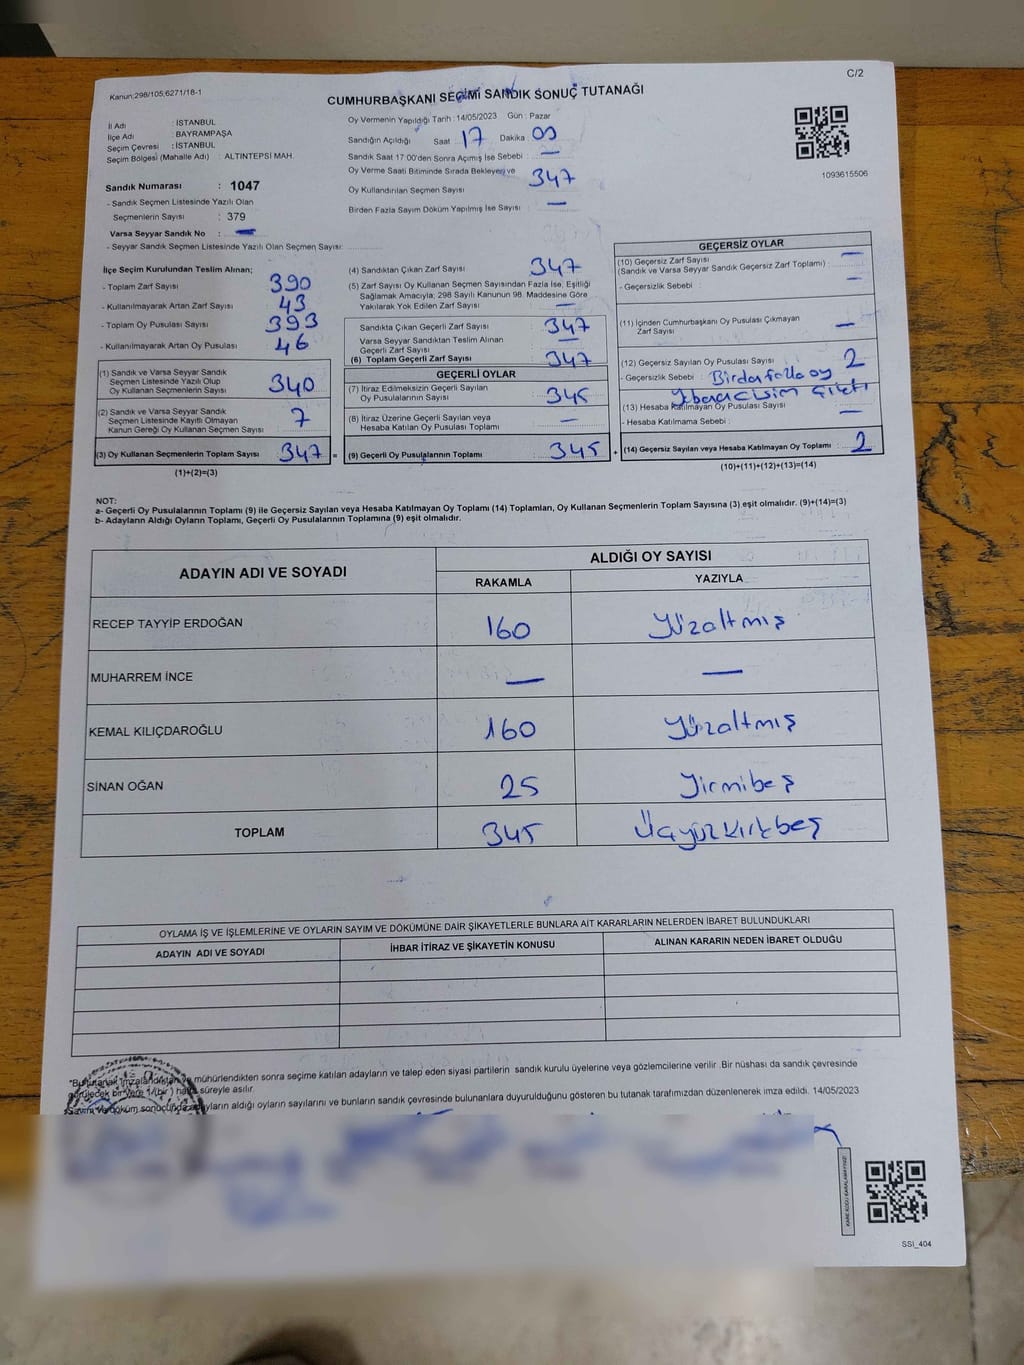 Kanun:298/105,6271/18-1
C/2
CUMHURBAŞKANI SEÇİMİ SANDIK SONUÇ TUTANAĞI
İl Adı : İSTANBUL
İlçe Adı : BAYRAMPAŞA
Seçim Çevresi : İSTANBUL
Seçim Bölgesi (Mahalle Adı) : ALTINTEPSİ MAH.
Sandık Numarası : 1047
- Sandık Seçmen Listesinde Yazılı Olan
Seçmenlerin Sayısı : 379
Varsa Seyyar Sandık No : —
- Seyyar Sandık Seçmen Listesinde Yazılı Olan Seçmen Sayısı:
Oy Vermenin Yapıldığı Tarih : 14/05/2023 Gün : Pazar
Sandığın Açıldığı Saat : 17 Dakika : 00
Sandık Saat 17.00'den Sonra Açımış İse Sebebi : —
Oy Verme Saati Bitiminde Sırada Bekleyen ve
Oy Kullandırılan Seçmen Sayısı 347
Birden Fazla Sayım Döküm Yapılmış İse Sayısı : —
1093615506
İlçe Seçim Kurulundan Teslim Alınan;
- Toplam Zarf Sayısı : 390
- Kullanılmayarak Artan Zarf Sayısı : 43
- Toplam Oy Pusulası Sayısı : 393
- Kullanılmayarak Artan Oy Pusulası : 46
(1) Sandık ve Varsa Seyyar Sandık
Seçmen Listesinde Yazılı Olup
Oy Kullanan Seçmenlerin Sayısı : 340
(2) Sandık ve Varsa Seyyar Sandık
Seçmen Listesinde Kayıtlı Olmayan
Kanun Gereği Oy Kullanan Seçmen Sayısı : 7
(3) Oy Kullanan Seçmenlerin Toplam Sayısı : 347 =
(1)+(2)=(3)
(4) Sandıktan Çıkan Zarf Sayısı : 347
(5) Zarf Sayısı Oy Kullanan Seçmen Sayısından Fazla İse, Eşitliği
Sağlamak Amacıyla; 298 Sayılı Kanunun 98. Maddesine Göre
Yakılarak Yok Edilen Zarf Sayısı : —
Sandıkta Çıkan Geçerli Zarf Sayısı : 347
Varsa Seyyar Sandıktan Teslim Alınan
Geçerli Zarf Sayısı : —
(6) Toplam Geçerli Zarf Sayısı : 347
GEÇERLİ OYLAR
(7) İtiraz Edilmeksizin Geçerli Sayılan
Oy Pusulalarının Sayısı : 345
(8) İtiraz Üzerine Geçerli Sayılan veya
Hesaba Katılan Oy Pusulası Toplamı : —
(9) Geçerli Oy Pusulalarının Toplamı : 345 +
GEÇERSİZ OYLAR
(10) Geçersiz Zarf Sayısı : —
(Sandık ve Varsa Seyyar Sandık Geçersiz Zarf Toplamı)
- Geçersizlik Sebebi : —
(11) İçinden Cumhurbaşkanı Oy Pusulası Çıkmayan
Zarf Sayısı : —
(12) Geçersiz Sayılan Oy Pusulası Sayısı : 2
- Geçersizlik Sebebi : Birden fazla oy
(13) Hesaba Katılmayan Oy Pusulası Sayısı : —
- Hesaba Katılmama Sebebi :
(14) Geçersiz Sayılan veya Hesaba Katılmayan Oy Toplamı : 2
(10)+(11)+(12)+(13)=(14)
NOT:
a- Geçerli Oy Pusulalarının Toplamı (9) ile Geçersiz Sayılan veya Hesaba Katılmayan Oy Toplamı (14) Toplamları, Oy Kullanan Seçmenlerin Toplam Sayısına (3) eşit olmalıdır. (9)+(14)=(3)
b- Adayların Aldığı Oyların Toplamı, Geçerli Oy Pusulalarının Toplamına (9) eşit olmalıdır.
ADAYIN ADI VE SOYADI
ALDIĞI OY SAYISI
RAKAMLA YAZIYLA
RECEP TAYYİP ERDOĞAN 160 Yüzaltmış
MUHARREM İNCE — —
KEMAL KILIÇDAROĞLU 160 Yüzaltmış
SİNAN OĞAN 25 Yirmibeş
TOPLAM 345 Üçyüzkırkbeş
OYLAMA İŞ VE İŞLEMLERİNE VE OYLARIN SAYIM VE DÖKÜMÜNE DAİR ŞİKAYETLERLE BUNLARA AİT KARARLARIN NELERDEN İBARET BULUNDUKLARI
ADAYIN ADI VE SOYADI İHBAR İTİRAZ VE ŞİKAYETİN KONUSU ALINAN KARARIN NEDEN İBARET OLDUĞU
*Bu tutanak imzalandıktan ve mühürlendikten sonra seçime katılan adayların ve talep eden siyasi partilerin sandık kurulu üyelerine veya gözlemcilerine verilir .Bir nüshası da sandık çevresinde
görülecek bir yere 1(bir ) hafta süreyle asılır.
Sayım ve döküm sonucunda adayların aldığı oyların sayılarını ve bunların sandık çevresinde bulunanlara duyurulduğunu gösteren bu tutanak tarafımızdan düzenlenerek imza edildi. 14/05/2023
KARE KODU KARALAMAYINIZ!
SSI_404